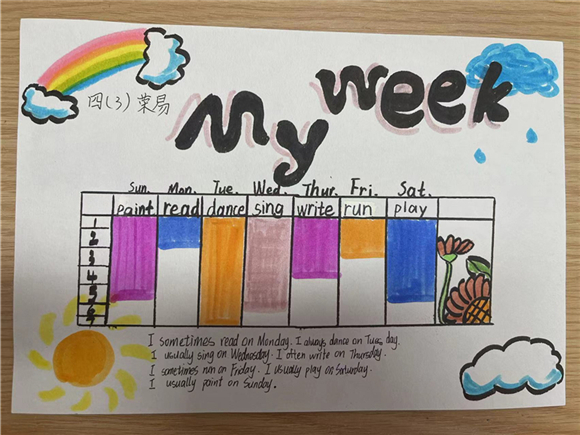 My week
四(3) 荣易
Sun. Mon. Tue. Wed. Thur. Fri. Sat.
paint read dance sing write run play
1
2
3
4
5
6
I sometimes read on Monday. I always dance on Tuesday.
I usually sing on Wednesday. I often write on Thursday.
I sometimes run on Friday. I usually play on Saturday.
I usually paint on Sunday.